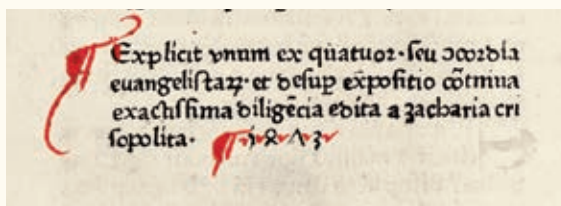 ¶ Explicit vnum ex quatuoꝛ·ſeu ↄcoꝛdia
euangeliſtaꝝ·et deſup exp̄oſitio cōtinua
exactiſſima diligēcia edita a zacharia cri
ſopolita· ¶ ·1·4·7·3